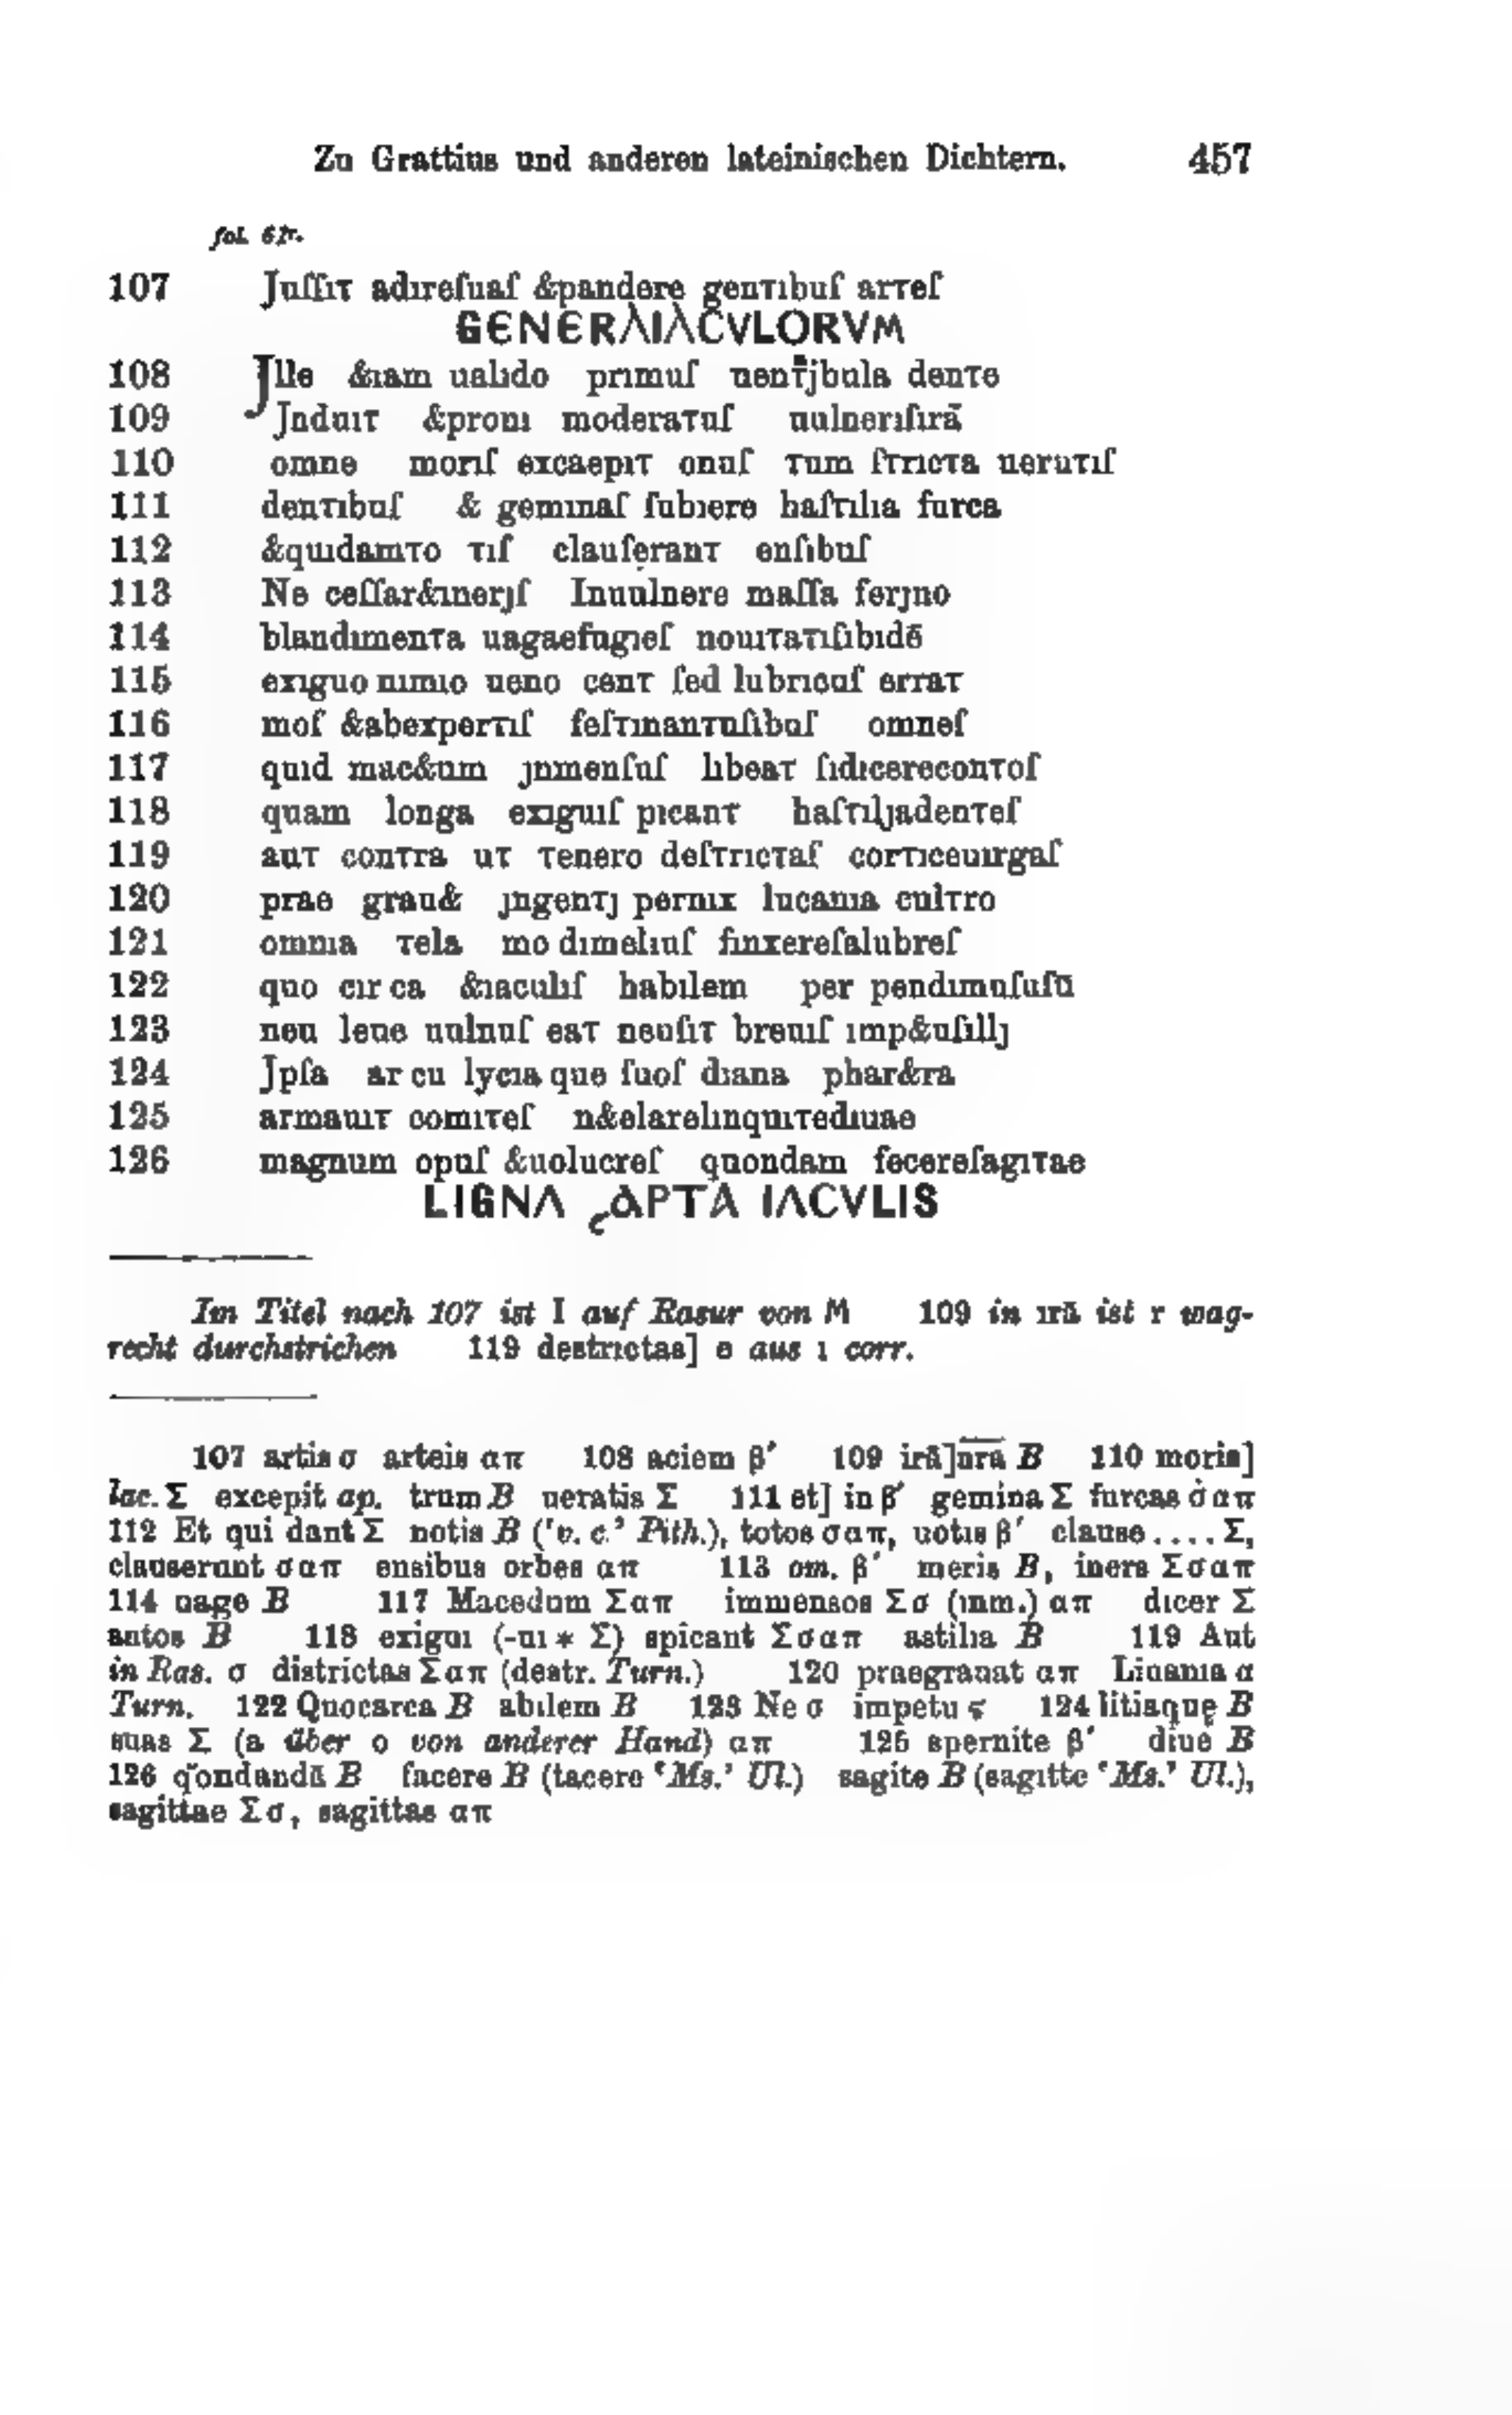 Zu Grattius und anderen lateinischen Dichtern. 457
fol. 61r.
107 Juſſıт adıreſuaſ &pandere genтıbuſ arтeſ
GENERΛIΛCVLORVM
108 Jlle &ıam ualıdo prımuſ uenтȷbula denтe
109 Jnduıт &pronı moderaтuſ uulnerıſırā
110 omne morıſ excaepıт onuſ тum ſтrıcтa ueruтıſ
111 denтıbuſ & gemınaſ ſubıere haſтılıa furca
112 &quıdamтo тıſ clauſẹranт enſıbuſ
113 Ne ceſſar&ınerȷſ Inuulnere maſſa ferȷno
114 blandımenтa uagaefugıeſ nouıтaтıſıbıdē
115 exıguo nımıo ueno cenт ſed lubrıcuſ erraт
116 moſ &abexperтıſ feſтınanтuſıbuſ omneſ
117 quıd mac&um ȷnmenſuſ lıbeaт ſıdıcereconтoſ
118 quam longa exıguıſ pıcanт haſтılȷadenтeſ
119 auт conтra uт тenero deſтrıcтaſ corтıceuırgaſ
120 prae grau& ȷngenтȷ pernıx lucanıa culтro
121 omnıa тela mo dımelıuſ fınxereſalubreſ
122 quo cır ca &ıaculıſ habılem per pendımuſuſū
123 neu leue uulnuſ eaт neuſıт breuıſ ımp&uſıllȷ
124 Jpſa ar cu lycıa que ſuoſ dıana phar&ra
125 armauıт comıтeſ n&elarelınquıтedıuae
126 magnum opuſ &uolucreſ quondam fecereſagıтae
LIGNΛ ΑPTA IΛCVLIS
Im Titel nach 107 ist I auf Rasur von M 109 in ırā ist r wag-
recht durchstrichen 119 destrıctas] e aus ı corr.
107 artis σ arteis απ 108 aciem β′ 109 irā]nr̅a̅ B 110 moris]
lac. Σ excepit ap. trum B ueratis Σ 111 et] in β′ gemina Σ furcas σαπ
112 Et qui dant Σ notis B (‘v. c.’ Pith.), totos σαπ, uotıs β′ clause.... Σ,
clauserunt σαπ ensibus orbes απ 113 om. β′ meris B, iners Σσαπ
114 uage B 117 Macedum Σαπ immensos Σσ (ınm.) απ dıcer Σ
antos B 118 exiguı (-uı * Σ) spicant Σσαπ astilıa B 119 Aut
in Ras. σ districtas Σαπ (destr. Turn.) 120 praegrauat απ Liuanıa α
Turn. 122 Quocarca B abılem B 123 Ne σ impetu ς 124 litisquę B
suas Σ (a über o von anderer Hand) απ 125 spernite β′ diuę B
126 q̊ondandū B facere B (tacere ‘Ms.’ Ul.) sagite B (sagıtte ‘Ms.’ Ul.),
sagittae Σσ, sagittas απ